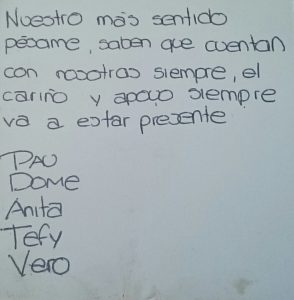 Nuestro más sentido
pésame, saben que cuentan
con nosotras siempre, el
cariño y apoyo siempre
va a estar presente
PAU
DOME
Anita
Tefy
Vero